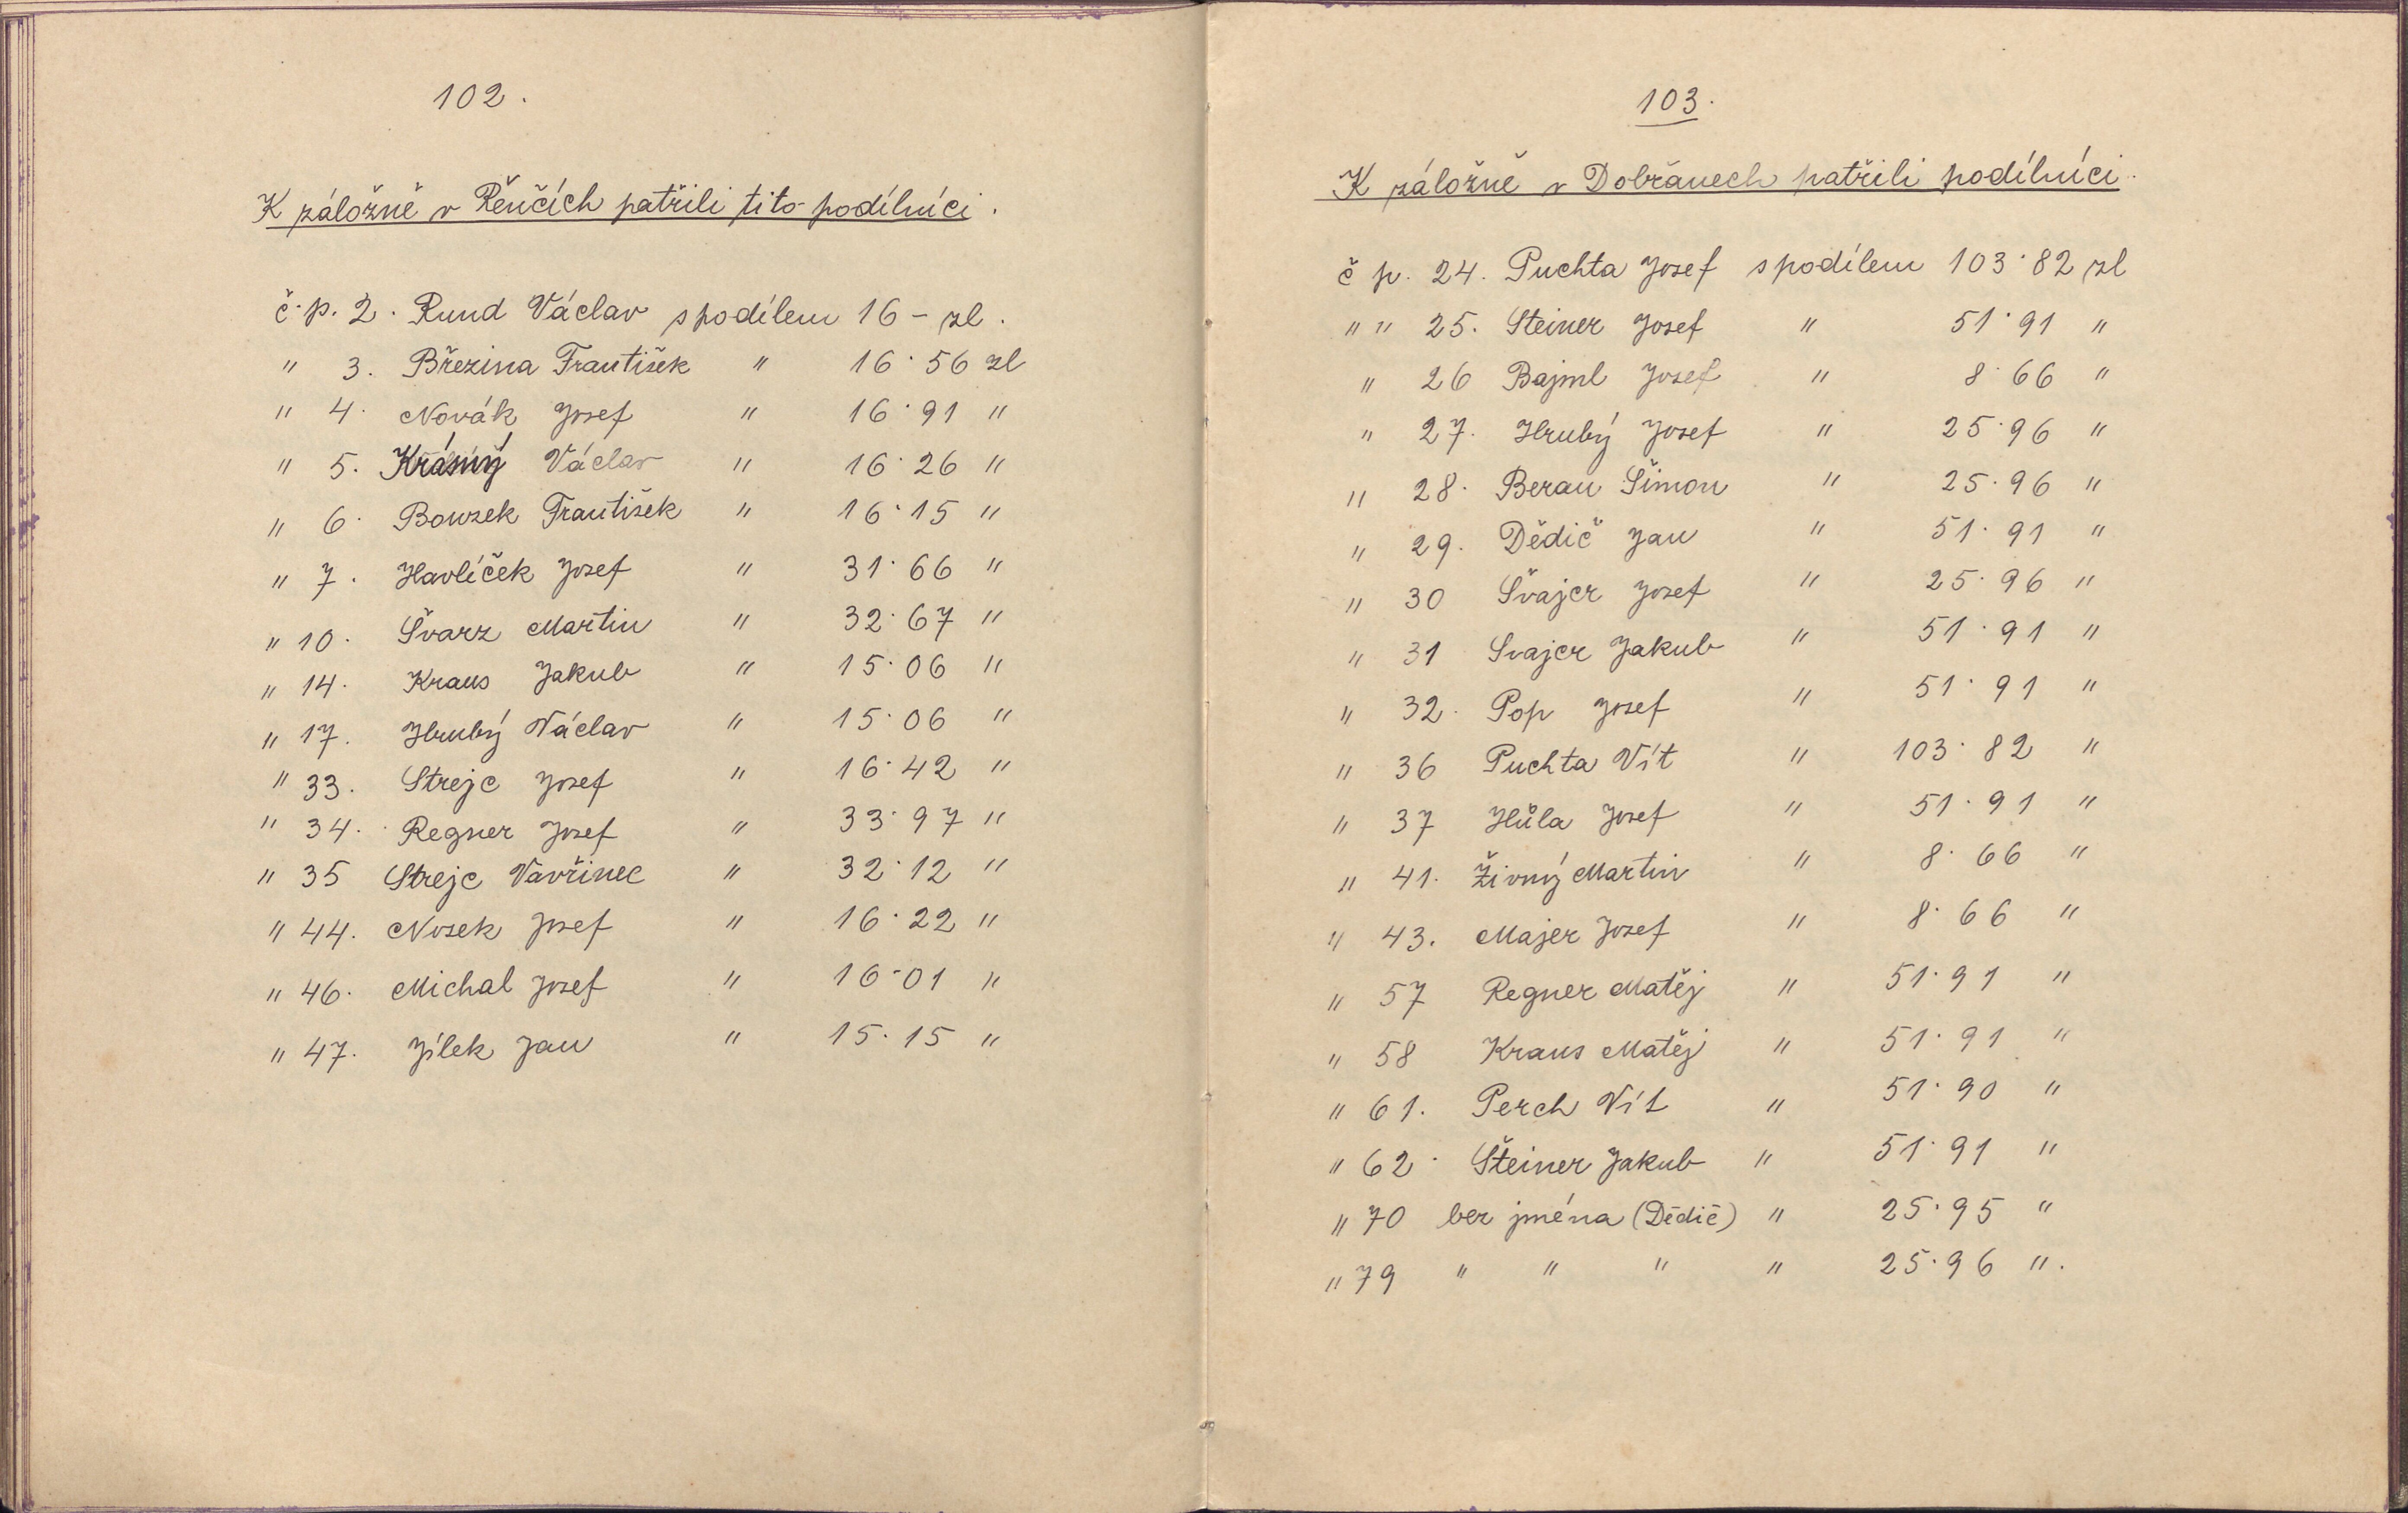 102.
K záložně v Řenčích patřili tito podílníci.
č.p. 2. Rund Václav s podílem 16 - zl.
" 3. Březina František " 16·56 zl
" 4. Novák Josef " 16·91 "
" 5. Krásný Václav " 16·26 "
" 6. Bouzek František " 16·15 "
" 7. Havlíček Josef " 31·66 "
" 10. Švarz Martin " 32·67 "
" 14. Kraus Jakub " 15·06 "
" 17. Hrubý Václav " 15·06 "
" 33. Strejc Josef " 16·42 "
" 34. Regner Josef " 33·97 "
" 35 Strejc Vavřinec " 32·12 "
" 44. Nosek Josef " 16·22 "
" 46. Michal Josef " 16·01 "
" 47. Jílek Jan " 15·15 "
103.
K záložně v Dobřanech patřili podílníci.
č p. 24. Puchta Josef s podílem 103·82 zl
" " 25. Steiner Josef " 51·91 "
" 26 Bajml Josef " 8·66 "
" 27. Hrubý Josef " 25·96 "
" 28. Beran Šimon " 25·96 "
" 29. Dědič Jan " 51·91 "
" 30 Švajcr Josef " 25·96 "
" 31 Svajcr Jakub " 51·91 "
" 32. Pop Josef " 51·91 "
" 36 Puchta Vít " 103·82 "
" 37 Hůla Josef " 51·91 "
" 41. Živný Martin " 8·66 "
" 43. Majer Josef " 8·66 "
" 57 Regner Matěj " 51·91 "
" 58 Kraus Matěj " 51·91 "
" 61. Perch Vít " 51·90 "
" 62. Šteiner Jakub " 51·91 "
" 70 bez jména (Dědič) " 25·95 "
" 79 " " " " 25·96 ".